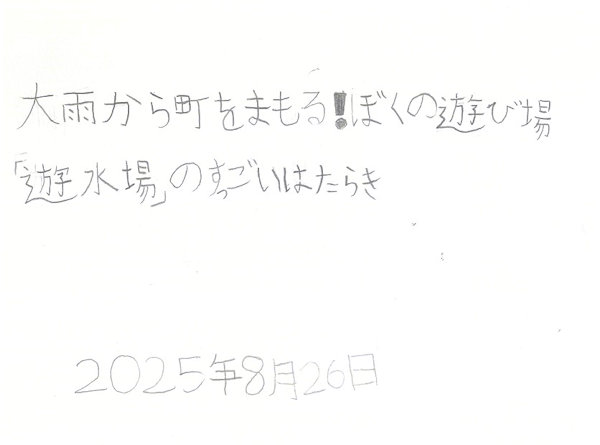 大雨から町をまもる!ぼくの遊び場
「遊水場」のすっごいはたらき
2025年8月26日